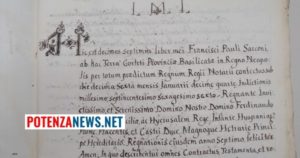 I. M. I.
Hic est decimus septimus liber mei Francisci Pauli Sassoni
ab hac Terra Corleti Provinciæ Basilicatæ in Regno Neapo-
lis per totum prædictum Regnum Regii Notarii contractus sub
die decima sexta mensis Januarii decimæ quartæ Indictionis
millesimo septincentesimo sexagesimo sexto. Regnante
et Serenissimo Domino Nostro Domino Ferdinando
Siciliæ, ac Hyerusalem Rege, Infante Hispaniæ
Duce Placentiæ, et Castri Duce, Magnoque Hetruriæ Princi-
pe Hereditario. Regnationis ejusdem anno septimo feliciter
Amen. In quo describuntur omnes Contractus Testamenta, et
POTENZANEWS.NET
POTENZANEWS.net